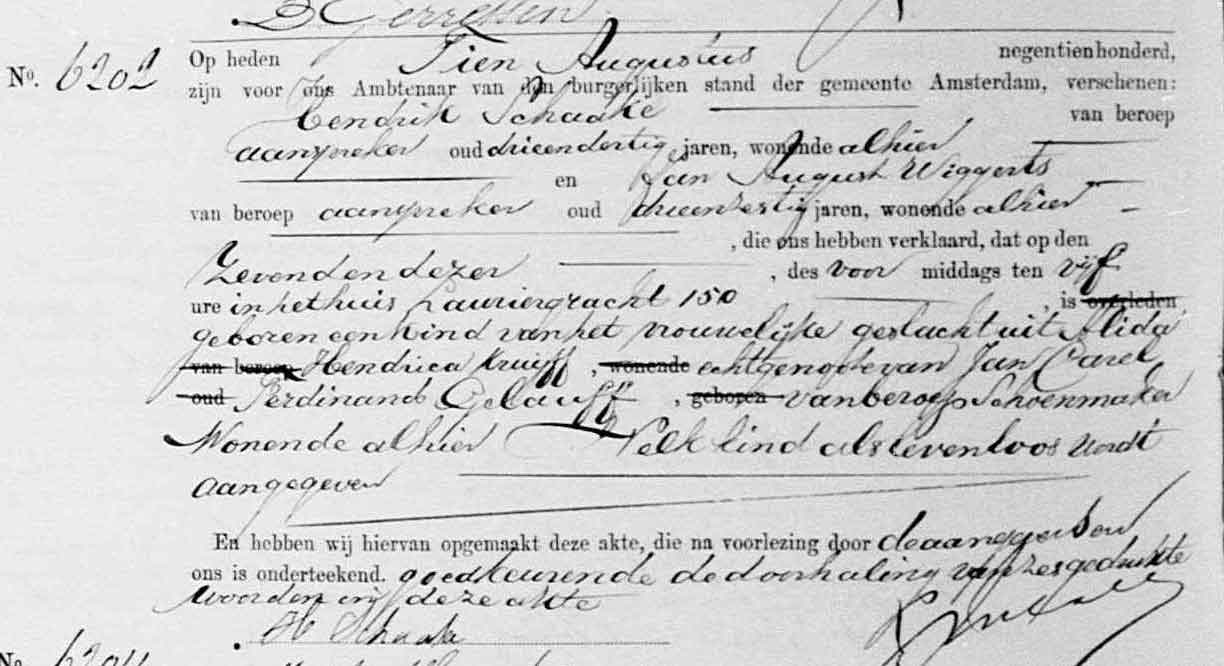 Gerretsen
Nº. 6202 Op heden Tien Augustus negentienhonderd,
zijn voor ons Ambtenaar van den burgerlijken stand der gemeente Amsterdam, verschenen:
Hendrik Schaake van beroep
aanspreker oud drieendertig jaren, wonende alhier
en Jan August Wiggerts
van beroep aanspreker oud drieenzestig jaren, wonende alhier
, die ons hebben verklaard, dat op den
Zevenden dezer , des voor middags ten vijf
ure in het huis Lauriergracht 150 , is overleden
geboren een kind van het vrouwelijke geslacht uit Alida
van beroep Hendrica Kruijff , wonende echtgenoote van Jan Carel
oud Ferdinand Gelauff , geboren van beroep Schoenmaker
Wonende alhier Welk kind als levenloos wordt
aangegeven
En hebben wij hiervan opgemaakt deze akte, die na voorlezing door de aangevers en
ons is onderteekend. goedkeurende de doorhaling van zes gedrukte
woorden in deze akte
H Schaake
Nº.